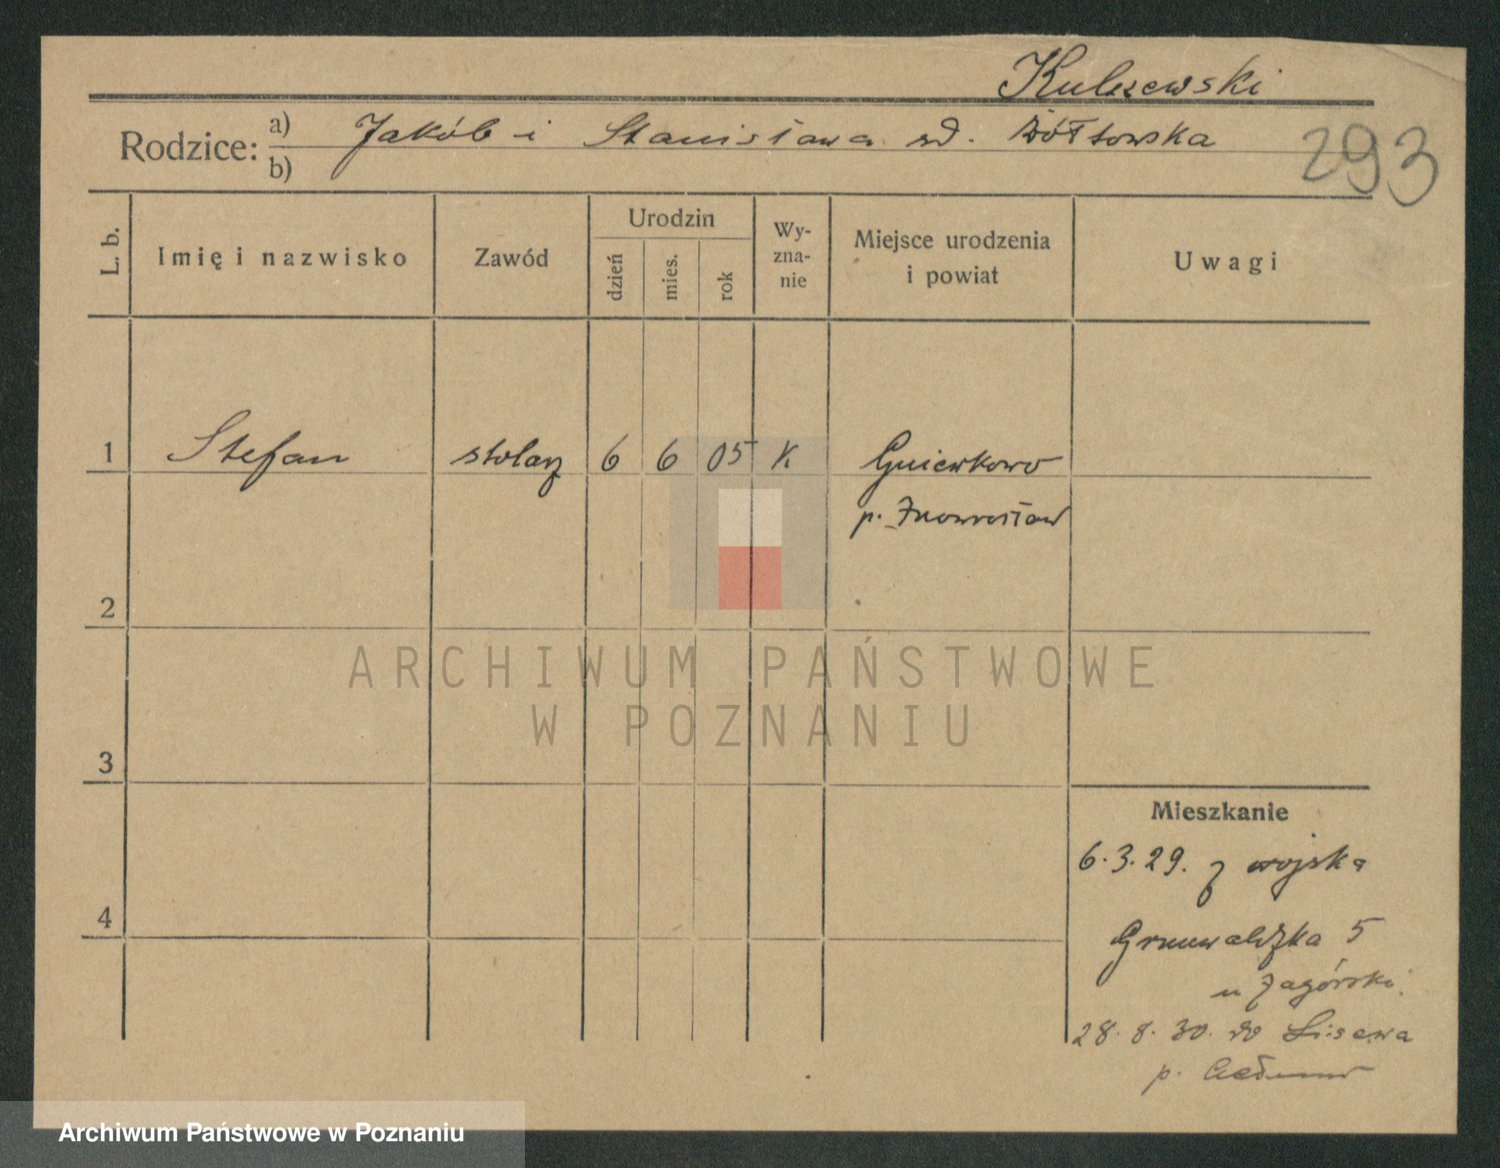 Kulszewski
Rodzice: a) Jakób i Stanisława wd. Żółtowska
b)
293
L. b.
Imię i nazwisko
Zawód
Urodzin
dzień
mies.
rok
Wy-
zna-
nie
Miejsce urodzenia
i powiat
Uwagi
1 Stefan stolarz 6 6 05 K Gniewkowo
p. Inowrocław
2
3
4
Mieszkanie
6.3.29. z wojska
Grunwaldzka 5
u Zagórski.
28.8.30. do Lisewa
p.
ARCHIWUM PAŃSTWOWE
W POZNANIU
Archiwum Państwowe w Poznaniu